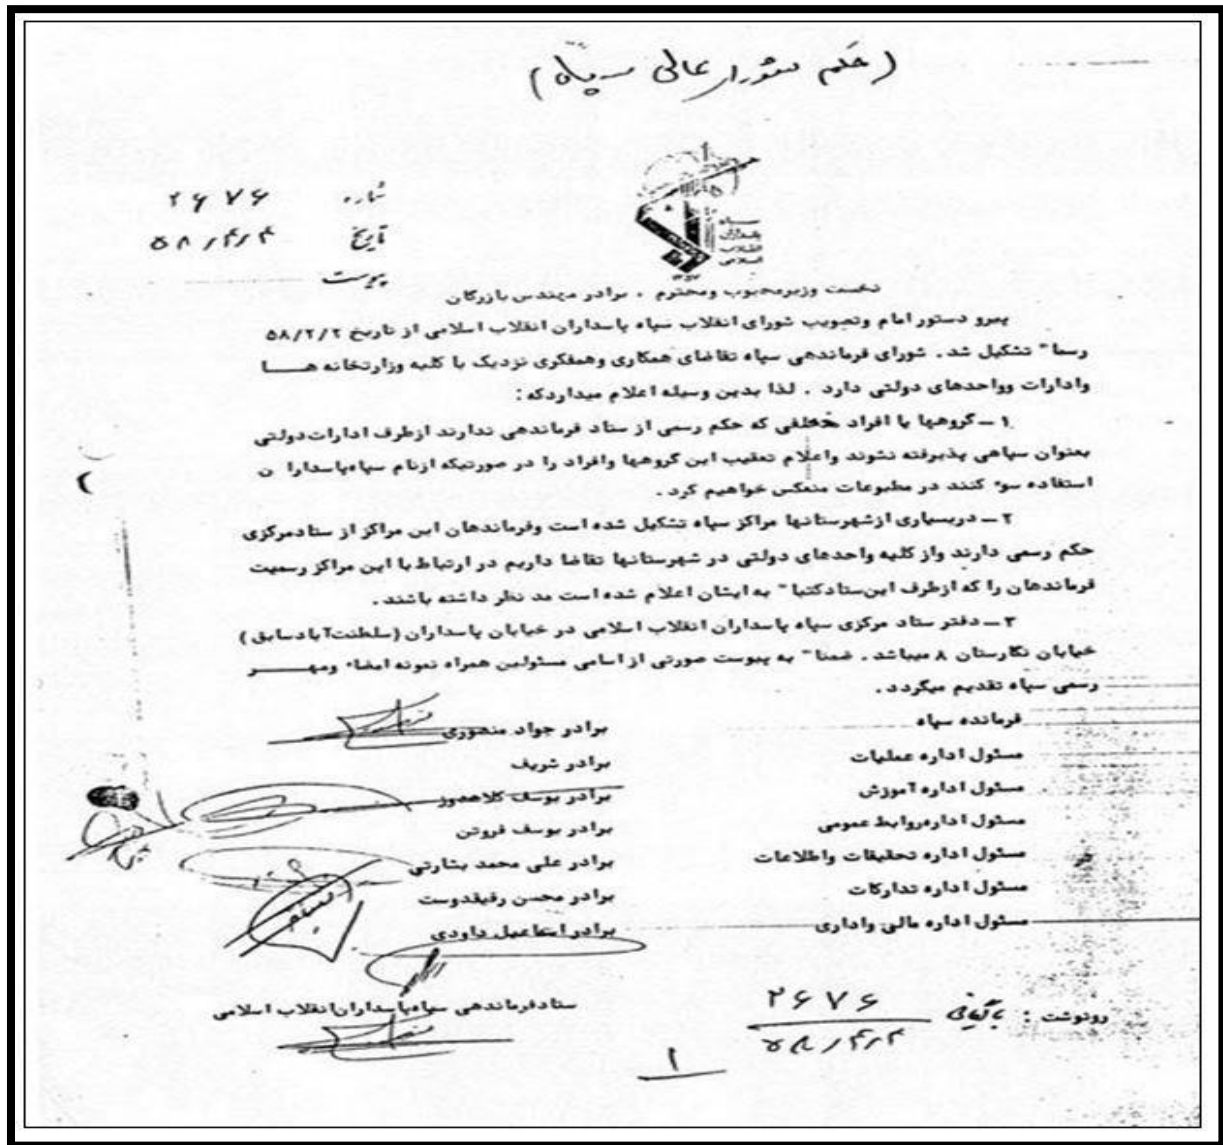 (حکم شورای عالی سپاه)
شماره ۲۶۷۶
تاریخ ۵۸/۴/۴
پیوست
سپاه
پاسداران
انقلاب
اسلامی
۱۳۵۷
نخست وزیر محبوب ومحترم . برادر مهندس بازرگان
پیرو دستور امام وتصویب شورای انقلاب سپاه پاسداران انقلاب اسلامی از تاریخ ۵۸/۲/۲
رسما" تشکیل شد . شورای فرماندهی سپاه تقاضای همکاری وهمفکری نزدیک با کلیه وزارتخانه هـــا
وادارات وواحدهای دولتی دارد . لذا بدین وسیله اعلام میداردکه :
۱ ــ گروهها یا افراد مختلفی که حکم رسمی از ستاد فرماندهی ندارند ازطرف ادارات دولتی
بعنوان سپاهی پذیرفته نشوند واعلام تعقیب این گروهها وافراد را در صورتیکه ازنام سپاه پاسدارا ن
استفاده سوء کنند در مطبوعات منعکس خواهیم کرد .
۲ ــ دربسیاری ازشهرستانها مراکز سپاه تشکیل شده است وفرماندهان این مراکز از ستادمرکزی
حکم رسمی دارند واز کلیه واحدهای دولتی در شهرستانها تقاضا داریم در ارتباط با این مراکز رسمیت
فرماندهان را که ازطرف این ستاد کتبا" به ایشان اعلام شده است مد نظر داشته باشند .
۳ ــ دفتر ستاد مرکزی سپاه پاسداران انقلاب اسلامی در خیابان پاسداران (سلطنت آباد سابق )
خیابان نگارستان ۸ میباشد . ضمنا" به پیوست صورتی از اسامی مسئولین همراه نمونه امضاء ومهـــر
رسمی سپاه تقدیم میگردد .
فرمانده سپاه برادر جواد منصوری
مسئول اداره عملیات برادر شریف
مسئول اداره آموزش برادر یوسف کلاهدوز
مسئول اداره روابط عمومی برادر یوسف فروتن
مسئول اداره تحقیقات واطلاعات برادر علی محمد بشارتی
مسئول اداره تدارکات برادر محسن رفیقدوست
مسئول اداره مالی واداری برادر اسماعیل داودی
ستاد فرماندهی سپاه پاسداران انقلاب اسلامی
رونوشت : بایگانی ۲۶۷۶
۵۸/۴/۴
۱